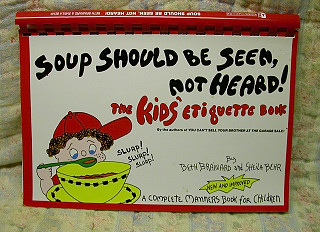 SOUP SHOULD BE SEEN, NOT HEARD!
SOUP SHOULD BE SEEN,
NOT HEARD!
THE KIDS' ETIQUETTE BOOK
By the authors of YOU CAN'T SELL YOUR BROTHER AT THE GARAGE SALE!
SLURP!
SLURP!
SLURP!
By
BETH BRAINARD and SHEILA BEHR
NEW AND IMPROVED
A COMPLETE MANNERS BOOK FOR CHILDREN